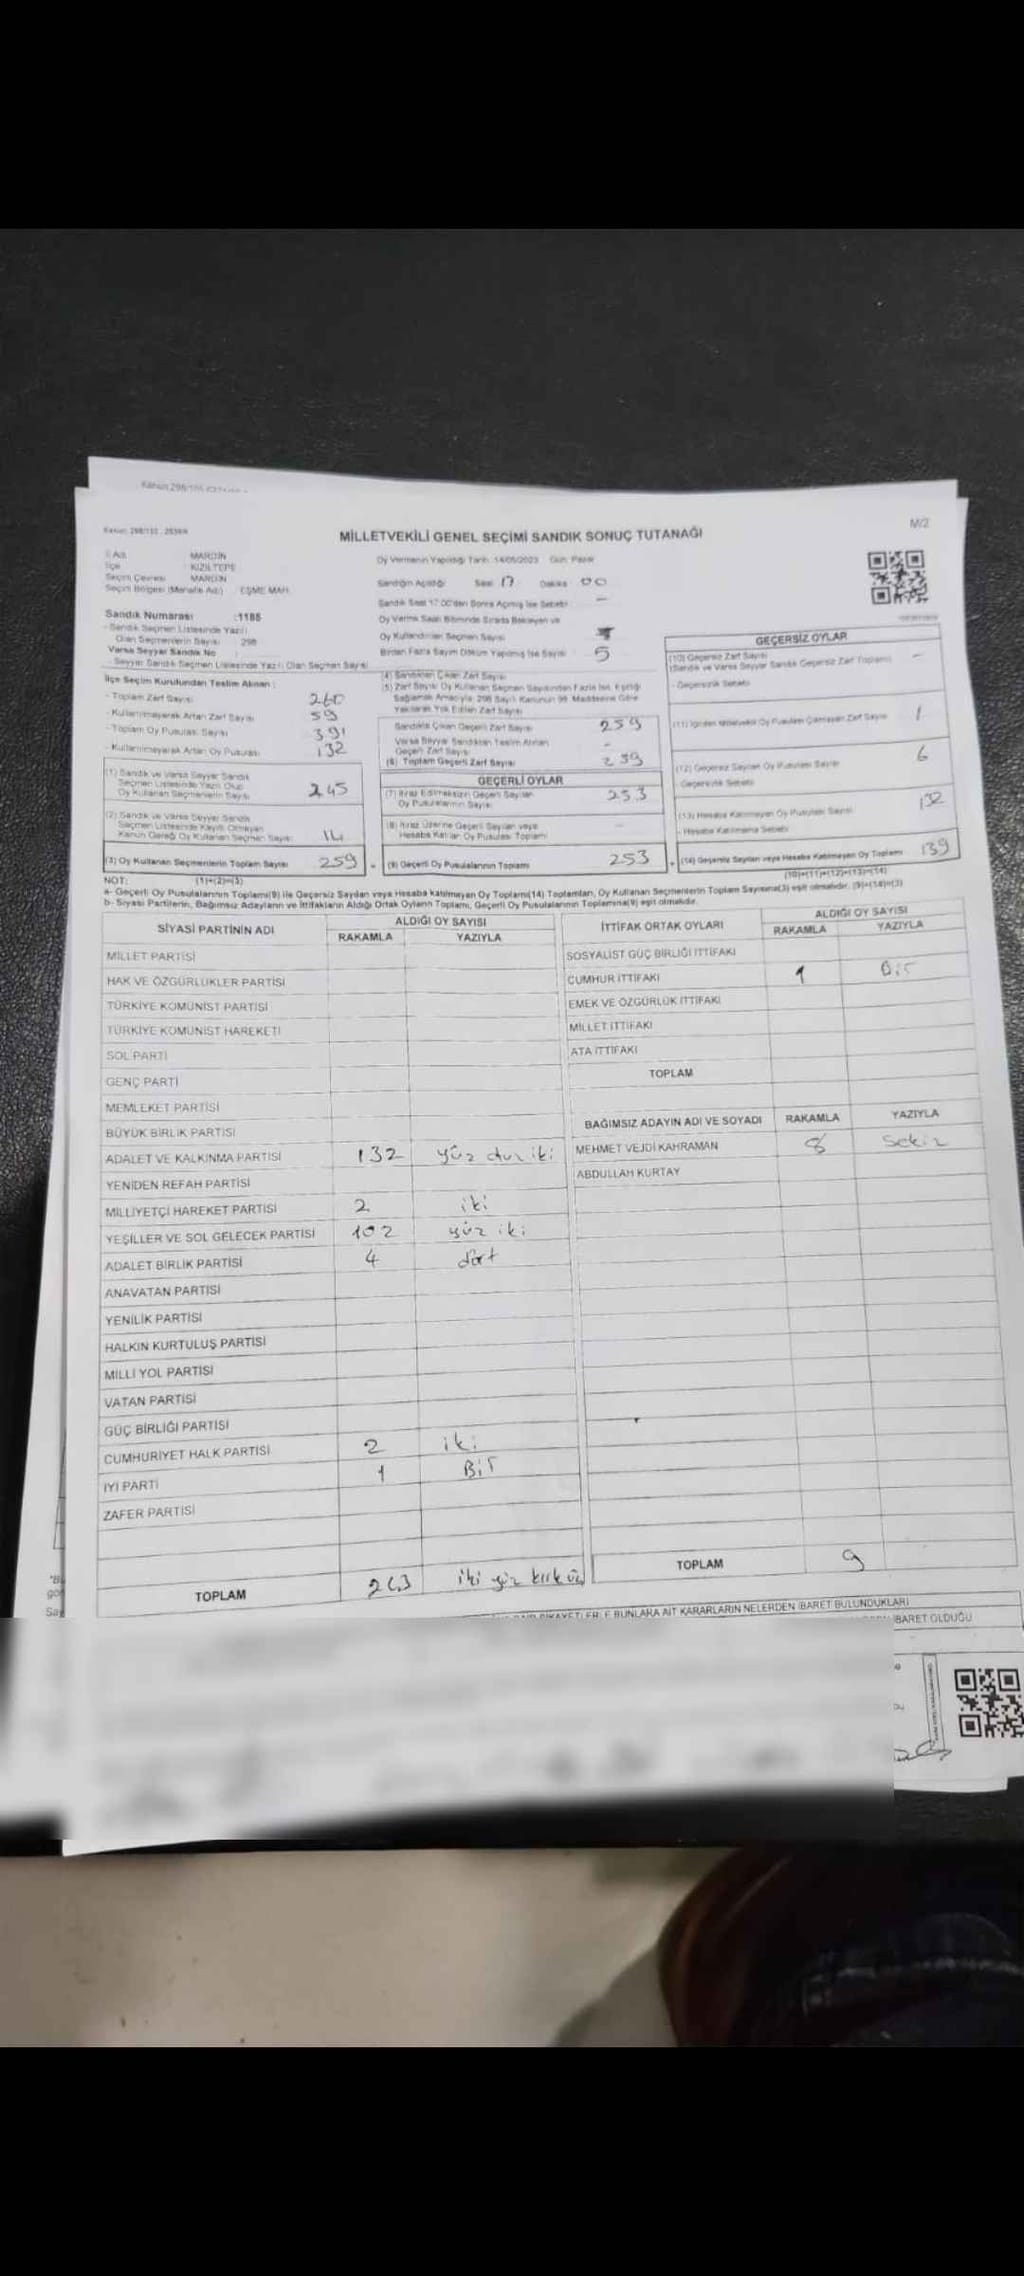 M/2
MİLLETVEKİLİ GENEL SEÇİMİ SANDIK SONUÇ TUTANAĞI
İl Adı : MARDİN
İlçe : KIZILTEPE
Seçim Çevresi : MARDİN
Seçim Bölgesi (Mahalle Adı) : EŞME MAH.
Oy Vermenin Yapıldığı Tarih: 14/05/2023 Gün: Pazar
Sandığın Açıldığı Saat 17 Dakika 00
Sandık Saat 17.00'den Sonra Açılmış İse Sebebi: -
Oy Verme Saati Bitiminde Sırada Bekleyen ve
Oy Kullandırılan Seçmen Sayısı
Birden Fazla Sayım Döküm Yapılmış İse Sayısı 5
Sandık Numarası :1185
- Sandık Seçmen Listesinde Yazılı
Olan Seçmenlerin Sayısı : 298
Varsa Seyyar Sandık No
- Seyyar Sandık Seçmen Listesinde Yazılı Olan Seçmen Sayısı
İlçe Seçim Kurulundan Teslim Alınan :
- Toplam Zarf Sayısı 260
- Kullanılmayarak Artan Zarf Sayısı 59
- Toplam Oy Pusulası Sayısı 391
- Kullanılmayarak Artan Oy Pusulası 132
(1) Sandık ve Varsa Seyyar Sandık
Seçmen Listesinde Yazılı Olup
Oy Kullanan Seçmenlerin Sayısı 245
(2) Sandık ve Varsa Seyyar Sandık
Seçmen Listesinde Kayıtlı Olmayan
Kanun Gereği Oy Kullanan Seçmen Sayısı 14
(3) Oy Kullanan Seçmenlerin Toplam Sayısı 259
(1)+(2)=(3)
(4) Sandıktan Çıkan Zarf Sayısı
(5) Zarf Sayısı Oy Kullanan Seçmen Sayısından Fazla İse, Eşitliği
Sağlamak Amacıyla 298 Sayılı Kanunun 98. Maddesine Göre
Yakılarak Yok Edilen Zarf Sayısı
Sandıkta Çıkan Geçerli Zarf Sayısı 259
Varsa Seyyar Sandıktan Teslim Alınan
Geçerli Zarf Sayısı -
(6) Toplam Geçerli Zarf Sayısı 259
GEÇERLİ OYLAR
(7) İtiraz Edilmeksizin Geçerli Sayılan
Oy Pusulalarının Sayısı 253
(8) İtiraz Üzerine Geçerli Sayılan veya
Hesaba Katılan Oy Pusulası Toplamı -
(9) Geçerli Oy Pusulalarının Toplamı 253
GEÇERSİZ OYLAR
(10) Geçersiz Zarf Sayısı -
(Sandık ve Varsa Seyyar Sandık Geçersiz Zarf Toplamı)
- Geçersizlik Sebebi
(11) İçinden Milletvekili Oy Pusulası Çıkmayan Zarf Sayısı 1
(12) Geçersiz Sayılan Oy Pusulası Sayısı 6
- Geçersizlik Sebebi
(13) Hesaba Katılmayan Oy Pusulası Sayısı 132
- Hesaba Katılmama Sebebi
(14) Geçersiz Sayılan veya Hesaba Katılmayan Oy Toplamı 139
(10)+(11)+(12)+(13)=(14)
NOT:
a- Geçerli Oy Pusulalarının Toplamı(9) ile Geçersiz Sayılan veya Hesaba katılmayan Oy Toplamı(14) Toplamları, Oy Kullanan Seçmenlerin Toplam Sayısına(3) eşit olmalıdır. (9)+(14)=(3)
b- Siyasi Partilerin, Bağımsız Adayların ve İttifakların Aldığı Ortak Oyların Toplamı, Geçerli Oy Pusulalarının Toplamına(9) eşit olmalıdır.
SİYASİ PARTİNİN ADI ALDIĞI OY SAYISI
RAKAMLA YAZIYLA
MİLLET PARTİSİ
HAK VE ÖZGÜRLÜKLER PARTİSİ
TÜRKİYE KOMÜNİST PARTİSİ
TÜRKİYE KOMÜNİST HAREKETİ
SOL PARTİ
GENÇ PARTİ
MEMLEKET PARTİSİ
BÜYÜK BİRLİK PARTİSİ
ADALET VE KALKINMA PARTİSİ 132 yüz otuz iki
YENİDEN REFAH PARTİSİ
MİLLİYETÇİ HAREKET PARTİSİ 2 iki
YEŞİLLER VE SOL GELECEK PARTİSİ 102 yüz iki
ADALET BİRLİK PARTİSİ 4 dört
ANAVATAN PARTİSİ
YENİLİK PARTİSİ
HALKIN KURTULUŞ PARTİSİ
MİLLİ YOL PARTİSİ
VATAN PARTİSİ
GÜÇ BİRLİĞİ PARTİSİ
CUMHURİYET HALK PARTİSİ 2 iki
İYİ PARTİ 1 Bir
ZAFER PARTİSİ
TOPLAM 243 iki yüz kırk üç
İTTİFAK ORTAK OYLARI ALDIĞI OY SAYISI
RAKAMLA YAZIYLA
SOSYALİST GÜÇ BİRLİĞİ İTTİFAKI
CUMHUR İTTİFAKI 1 Bir
EMEK VE ÖZGÜRLÜK İTTİFAKI
MİLLET İTTİFAKI
ATA İTTİFAKI
TOPLAM
BAĞIMSIZ ADAYIN ADI VE SOYADI RAKAMLA YAZIYLA
MEHMET VEJDİ KAHRAMAN 8 Sekiz
ABDULLAH KURTAY
TOPLAM 9
BUNLARA AİT KARARLARIN NELERDEN İBARET BULUNDUKLARI
İBARET OLDUĞU